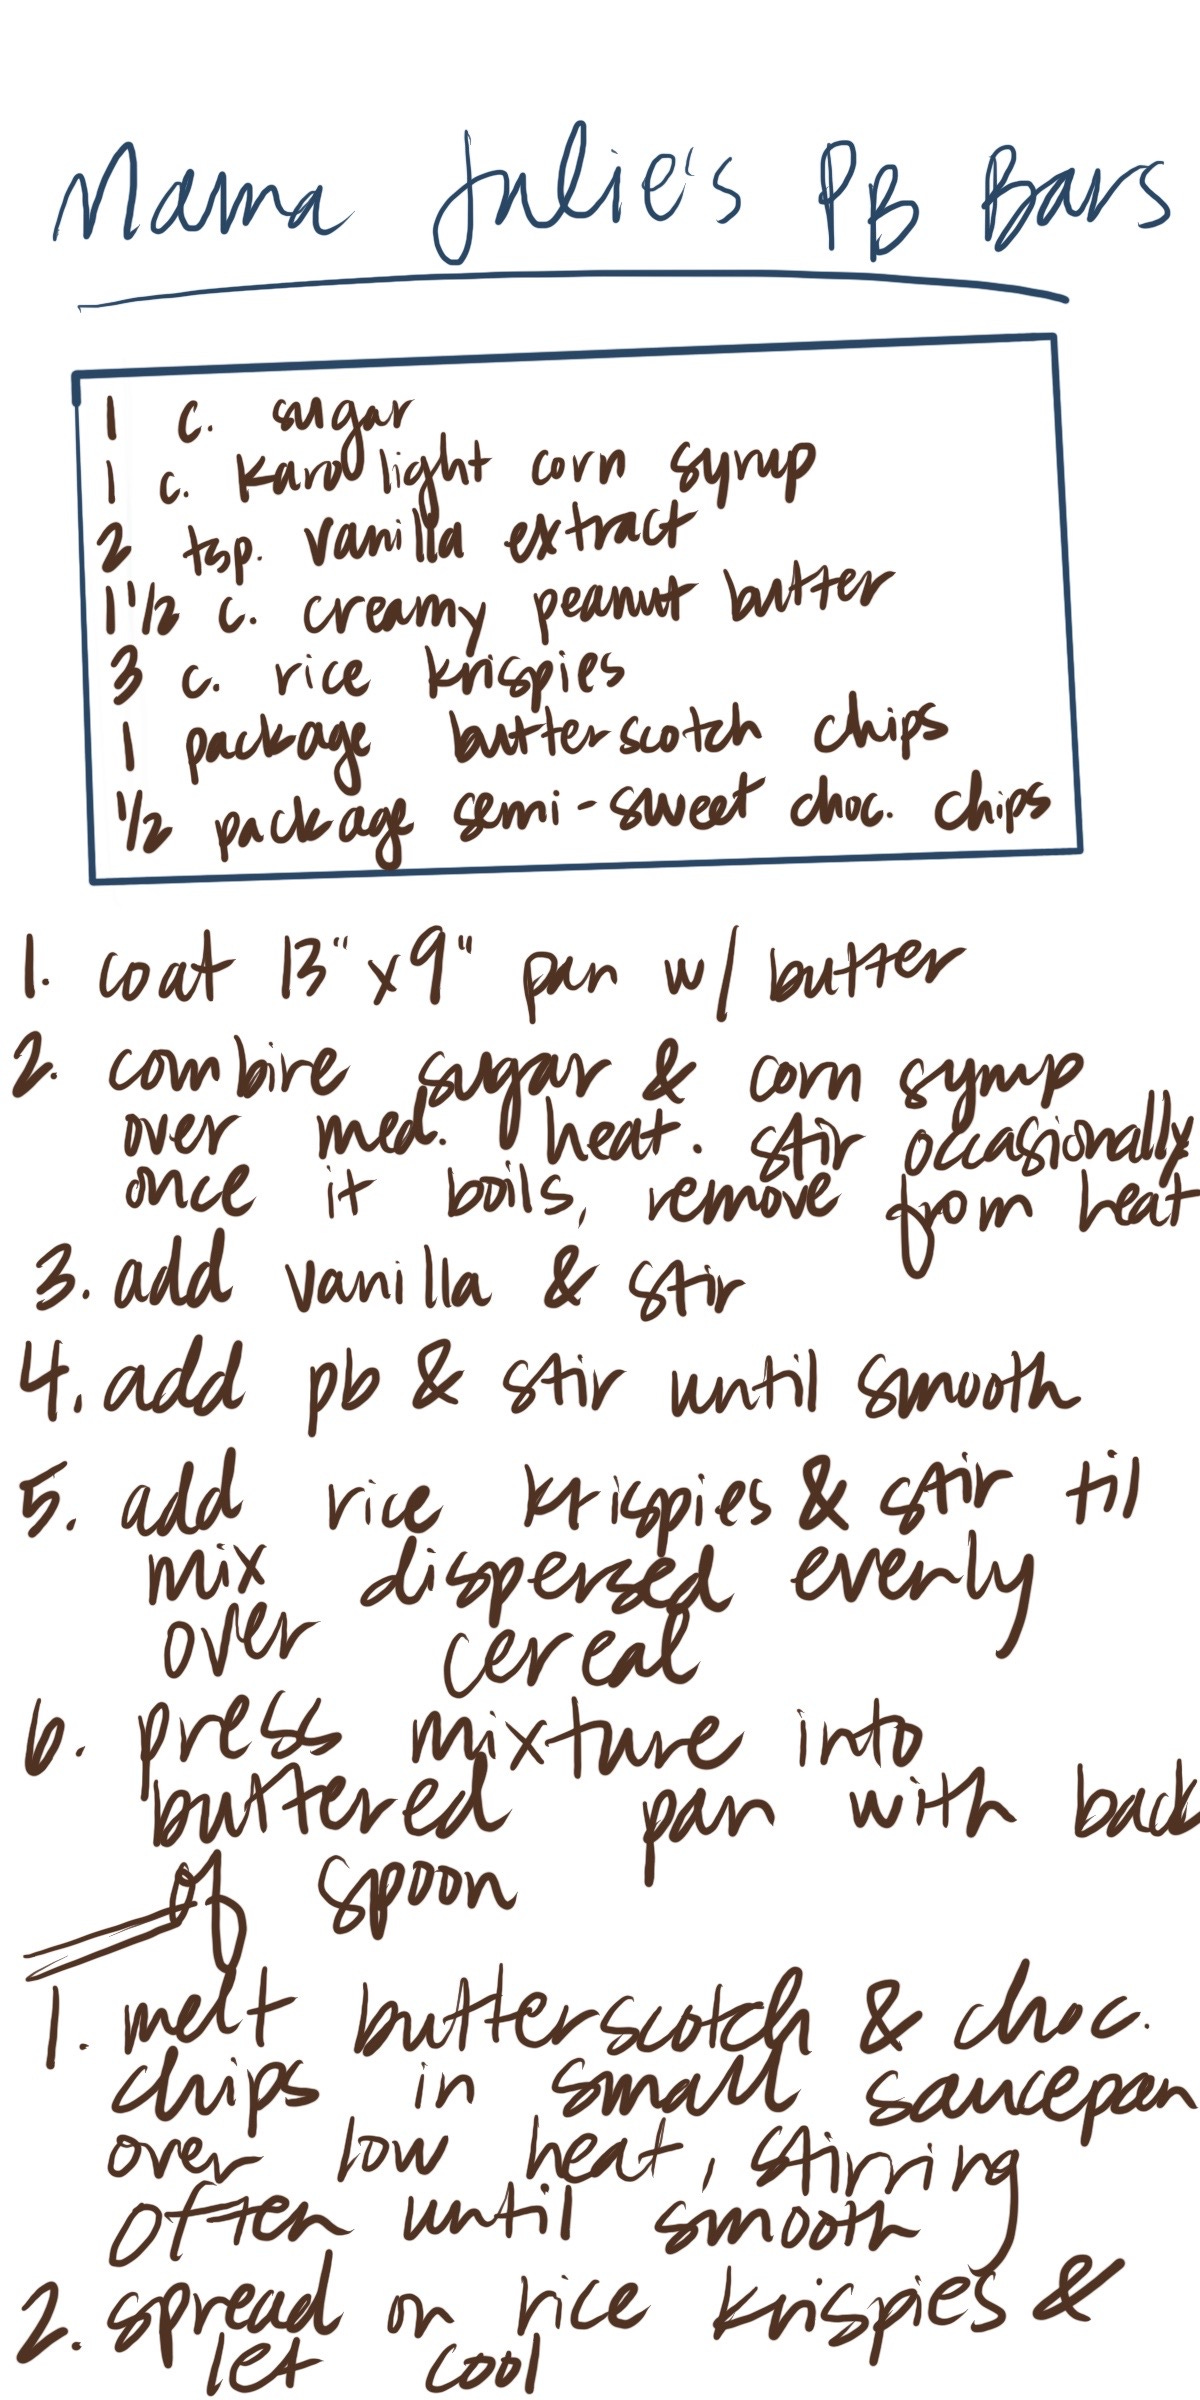 Mama Julie's PB Bars
1 c. sugar
1 c. Karo light corn syrup
2 tsp. vanilla extract
1 1/2 c. creamy peanut butter
3 c. rice krispies
1 package butterscotch chips
1/2 package semi-sweet choc. chips
1. coat 13" x 9" pan w/ butter
2. combine sugar & corn syrup
over med. heat. stir occasionally
once it boils, remove from heat
3. add vanilla & stir
4. add pb & stir until smooth
5. add rice krispies & stir til
mix dispersed evenly
over cereal
6. press mixture into
buttered pan with back
of spoon
1. melt butterscotch & choc.
chips in small saucepan
over low heat, stirring
often until smooth
2. spread on rice krispies &
let cool